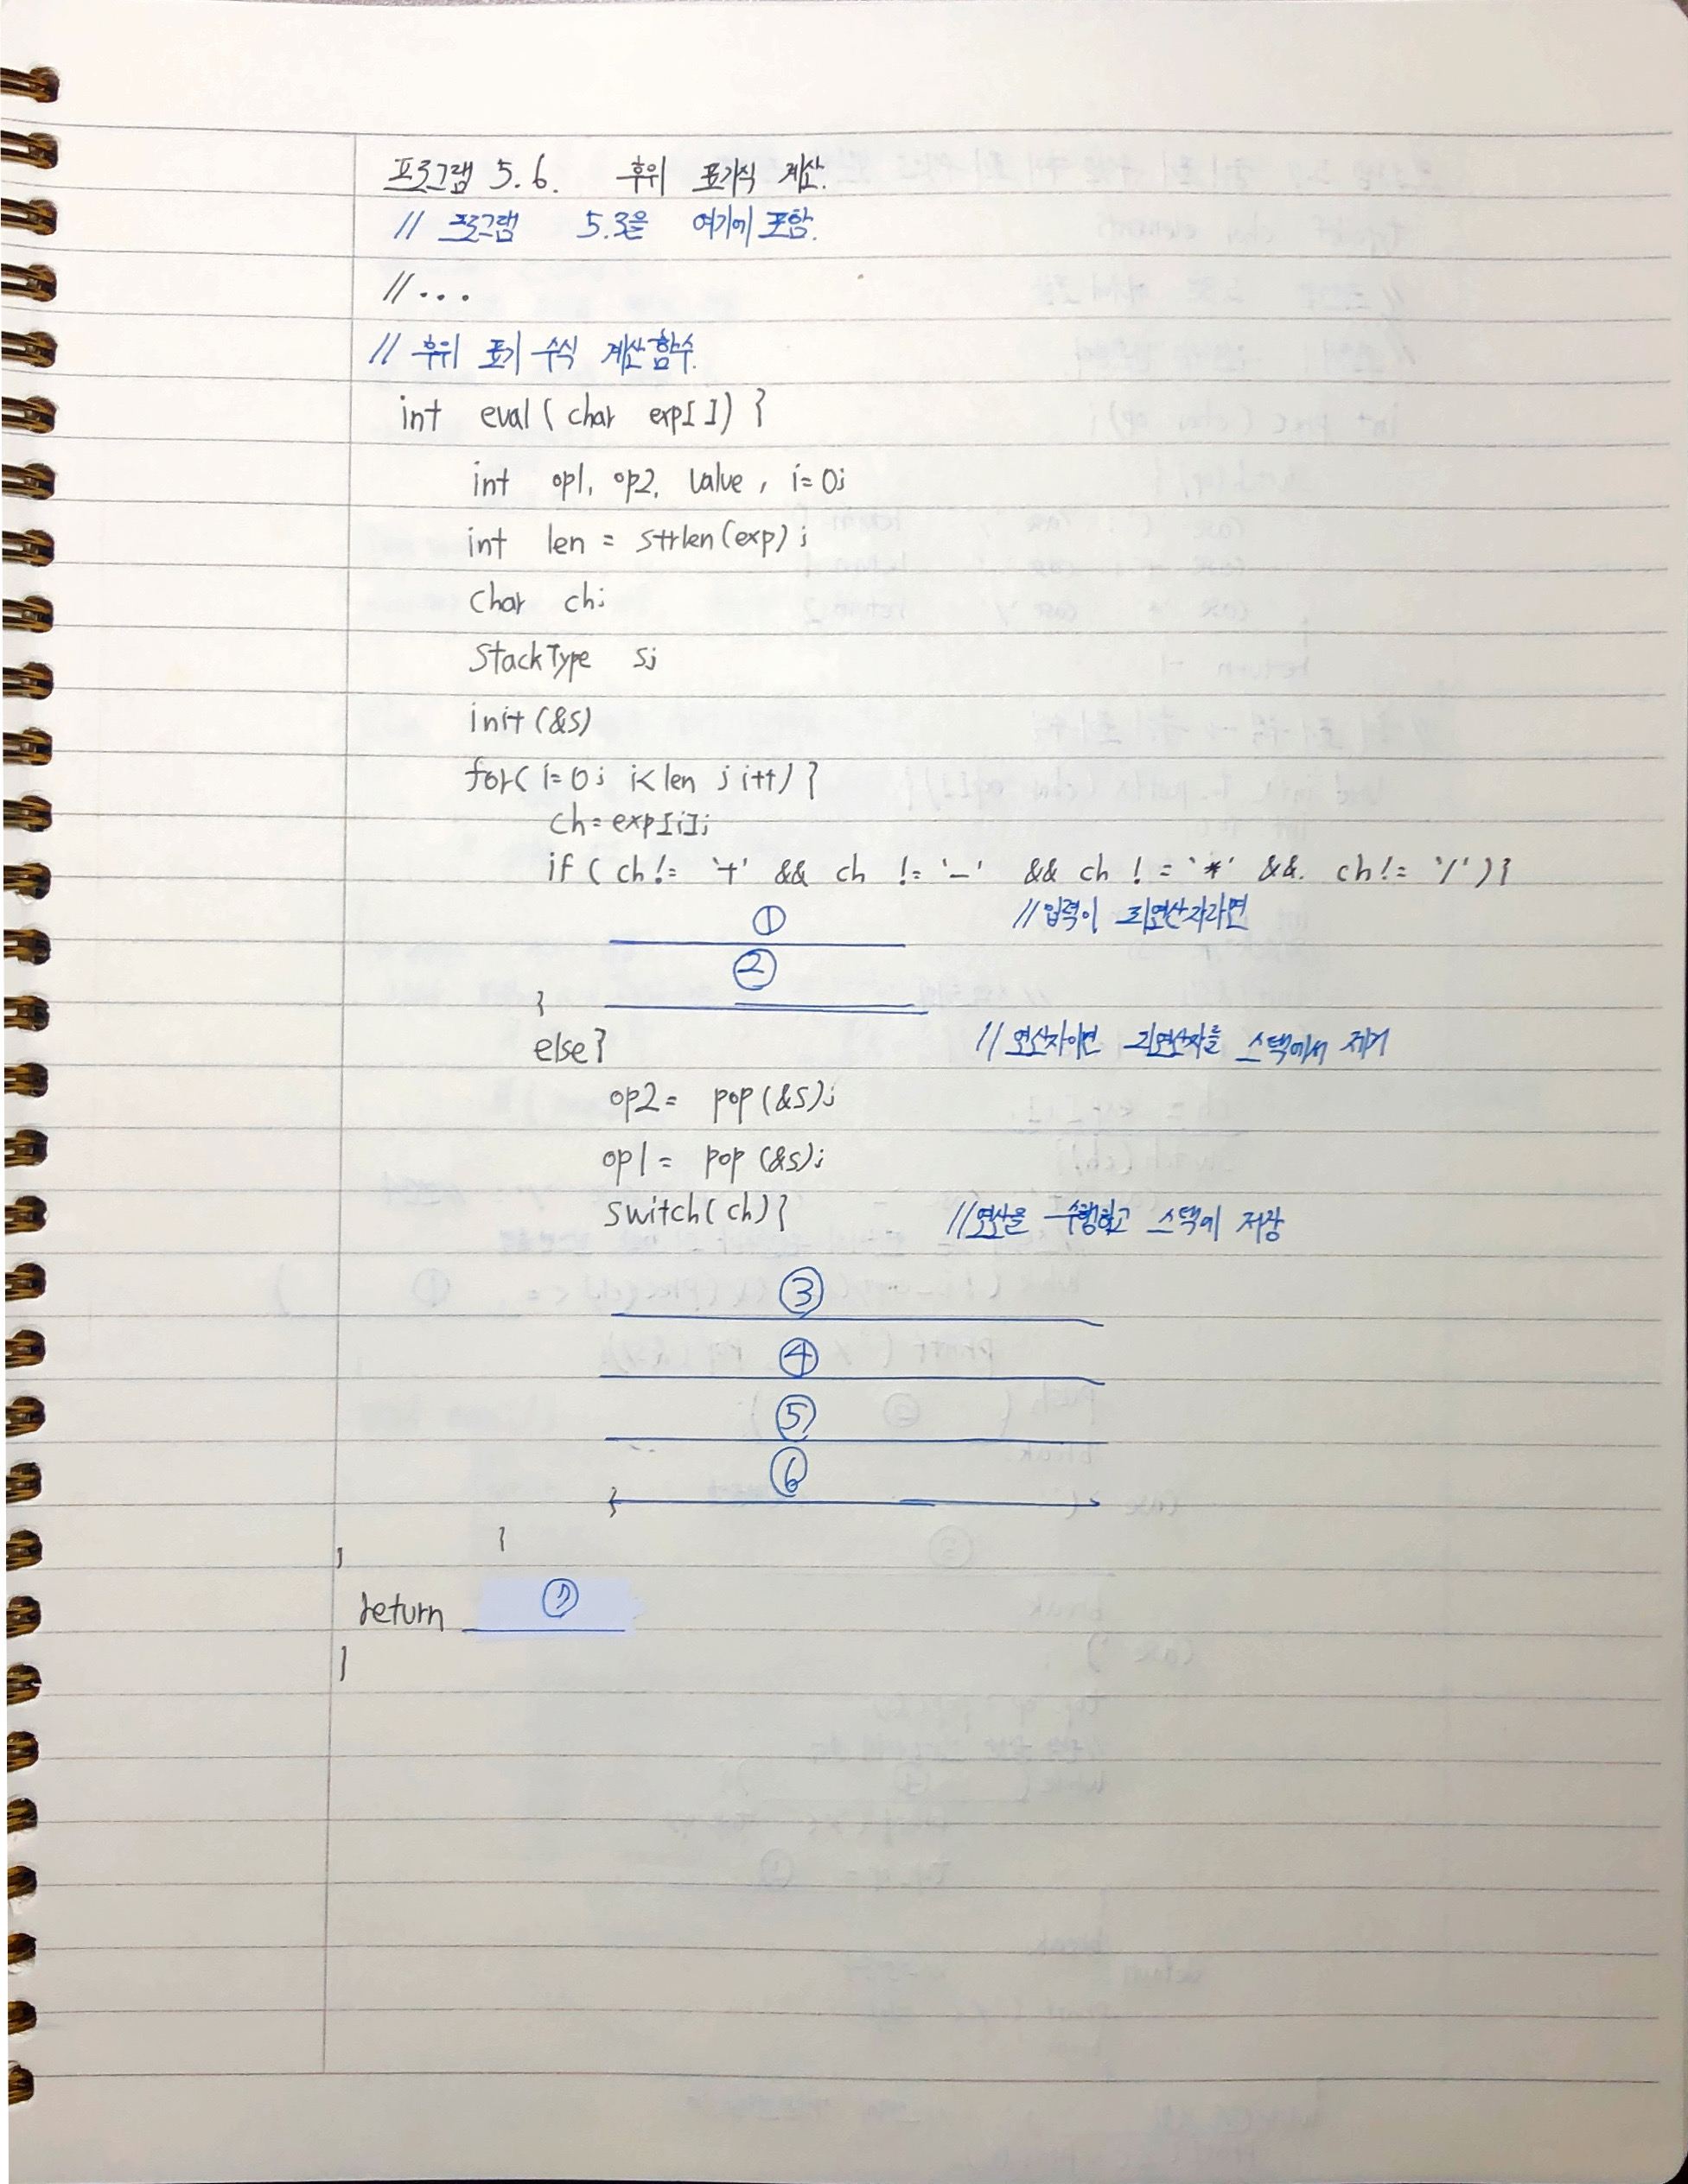 프로그램 5.6. 후위 표기식 계산.
// 프로그램 5.3을 여기에 포함.
//...
// 후위 표기 수식 계산함수.
int eval ( char exp[ ]) {
int op1, op2, value, i=0;
int len = strlen(exp);
char ch;
StackType s;
init(&s)
for( i=0; i<len ; i++) {
ch=exp[i];
if ( ch != '+' && ch != '-' && ch != '*' && ch != '/' ) {
① //입력이 피연산자라면
②
}
else { // 연산자이면 피연산자를 스택에서 제거
op2 = pop(&s);
op1 = pop(&s);
switch(ch) { //연산을 수행하고 스택에 저장
③
④
⑤
⑥
}
}
}
return ⑦
}